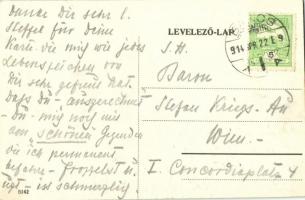 Danke Dir sehr l.
Steffel für Deine
Karte die mich wie jedes
Lebenszeichen von
Dir sehr gefreut hat.
dass du - ausgerechnet
- du - mich noch mit
den schönen Gegenden
die ich permanent
ist schmerzlich
5142
LEVELEZŐ-LAP
S. H.
Baron
Stefan Kriegs-Au
Wien
I. Concordiaplatz 4